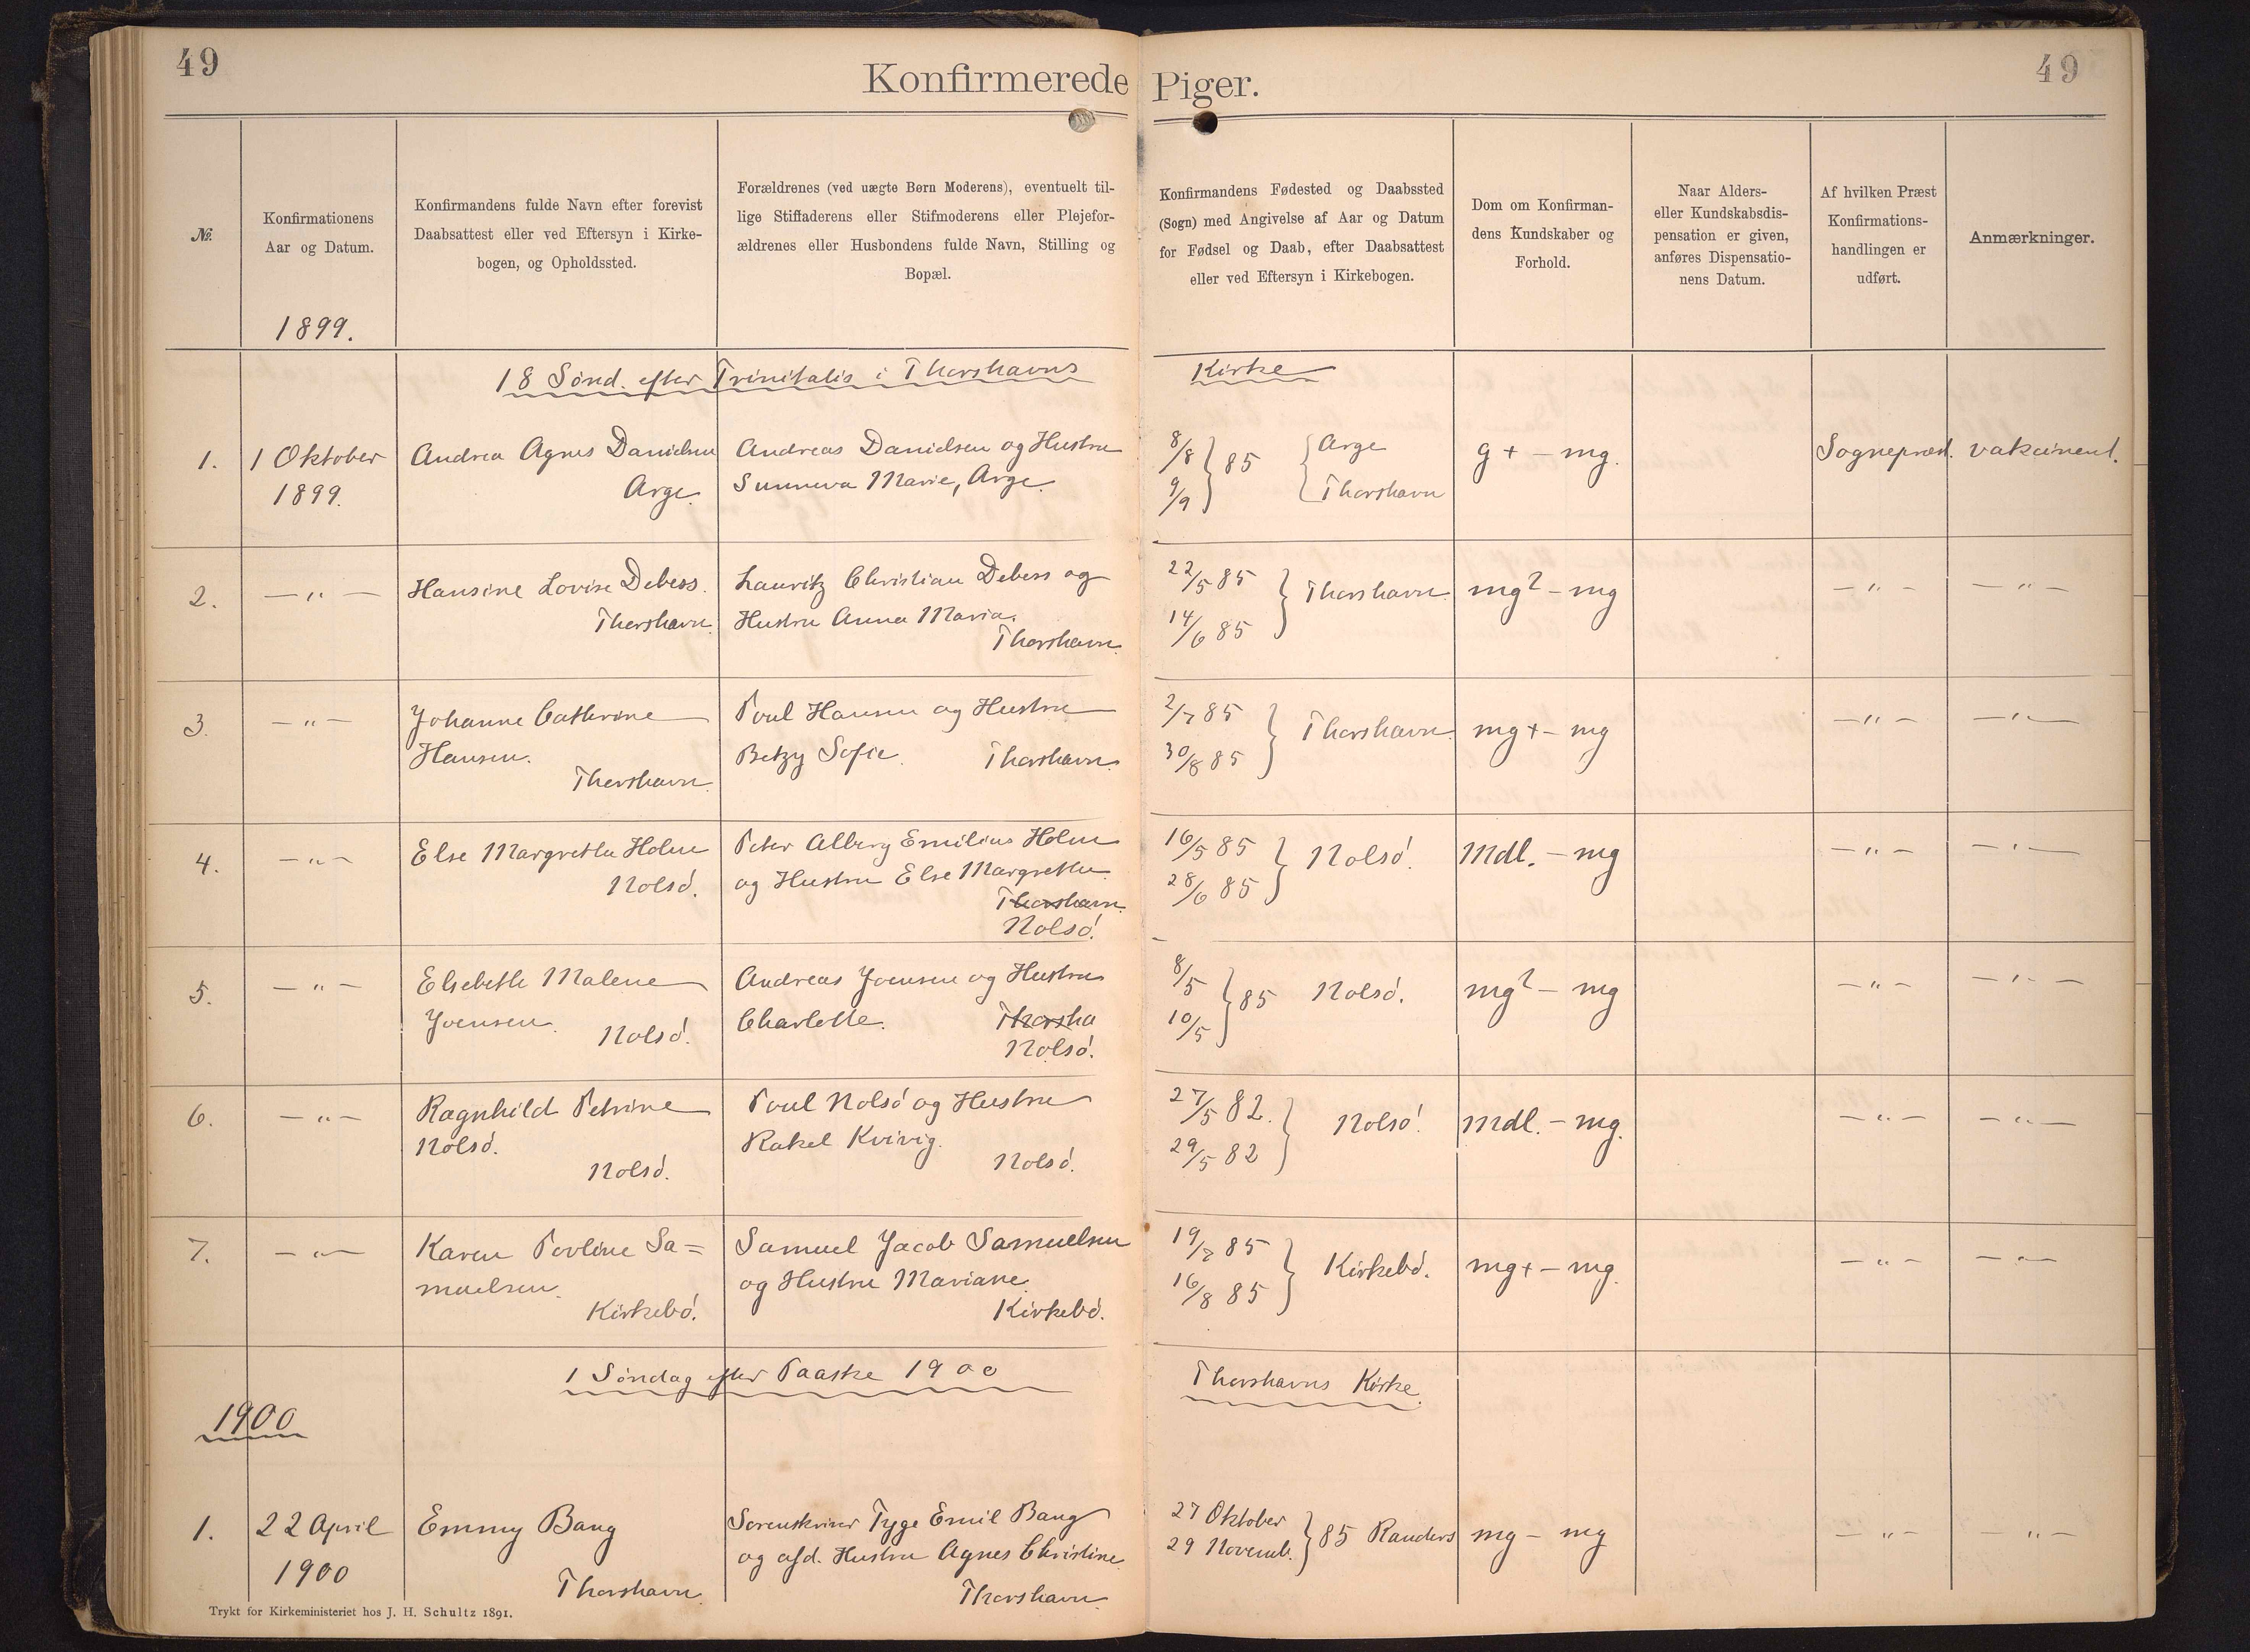 49
49
Konfirmerede Piger.
№.
Konfirmationens
Aar og Datum.
1899.
Konfirmandens fulde Navn efter forevist
Daabsattest eller ved Eftersyn i Kirke-
bogen, og Opholdssted.
Forældrenes (ved uægte Børn Moderens), eventuelt til-
lige Stiffaderens eller Stifmoderens eller Plejefor-
ældrenes eller Husbondens fulde Navn, Stilling og
Bopæl.
Konfirmandens Fødested og Daabssted
(Sogn) med Angivelse af Aar og Datum
for Fødsel og Daab, efter Daabsattest
eller ved Eftersyn i Kirkebogen.
Dom om Konfirman-
dens Kundskaber og
Forhold.
Naar Alders-
eller Kundskabsdis-
pensation er given,
anføres Dispensatio-
nens Datum.
Af hvilken Præst
Konfirmations-
handlingen er
udført.
Anmærkninger.
18 Sönd. efter Trinitatis i Thorshavns Kirke
1.
1 Oktober
1899.
Andrea Agnes Danielsen
Arge.
Andreas Danielsen og Hustru
Sunneva Marie, Arge.
8/8
9/9 } 85
{ Arge
Thorshavn
g+ - mg.
Sognepræst.
vakcineret.
2.
— „ —
Hansine Lovise Debess.
Thorshavn.
Lauritz Christian Debess og
Hustru Anna Maria.
Thorshavn.
22/5 85
14/6 85 } Thorshavn.
mg? - mg
— „ —
— „ —
3.
— „ —
Johanne Cathrine
Hansen.
Thorshavn.
Poul Hansen og Hustru
Betzy Sofie. Thorshavn.
2/7 85
30/8 85 } Thorshavn.
mg+ - mg
— „ —
— „ —
4.
— „ —
Else Margrethe Holm
Nolsö.
Peter Alberg Emilius Holm
og Hustru Else Margrethe
Thorshavn.
Nolsö.
16/5 85
28/6 85 } Nolsö.
Mdl. - mg
— „ —
— „ —
5.
— „ —
Elsebeth Malene
Joensen. Nolsö.
Andreas Joensen og Hustru
Charlotte. Thorsha
Nolsö.
8/5
10/5 } 85 Nolsö.
mg? - mg
— „ —
— „ —
6.
— „ —
Ragnhild Petrine
Nolsö.
Nolsö.
Poul Nolsö og Hustru
Rakel Kvivig.
Nolsö.
27/5 82.
29/5 82 } Nolsö.
Mdl. - mg.
— „ —
— „ —
7.
— „ —
Karen Povline Sa=
muelsen.
Kirkebö.
Samuel Jacob Samuelsen
og Hustru Mariane.
Kirkebö.
19/7 85
16/8 85 } Kirkebö.
mg+ - mg.
— „ —
— „ —
1 Söndag efter Paaske 1900 Thorshavns Kirke.
1900
1.
22 April
1900
Emmy Bang
Thorshavn.
Sorenskriver Tyge Emil Bang
og afd. Hustru Agnes Christine
Thorshavn.
27 Oktober
29 Novemb. } 85 Randers
mg - mg
— „ —
— „ —
Trykt for Kirkeministeriet hos J. H. Schultz 1891.